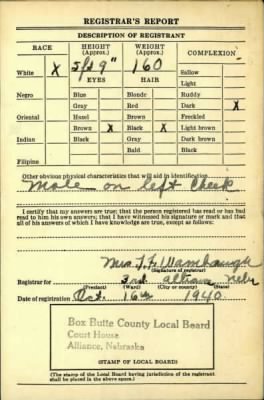 REGISTRAR'S REPORT
DESCRIPTION OF REGISTRANT
RACE HEIGHT (Approx.) WEIGHT (Approx.) COMPLEXION
White X 5 ft 9" 160 Sallow
EYES HAIR Light
Negro Blue Blonde Ruddy
Gray Red Dark X
Oriental Hazel Brown Freckled
Brown X Black X Light brown
Indian Black Gray Dark brown
Bald Black
Filipino
Other obvious physical characteristics that will aid in identification
Mole on left Cheek
I certify that my answers are true; that the person registered has read or has had
read to him his own answers; that I have witnessed his signature or mark and that
all of his answers of which I have knowledge are true, except as follows:
Mrs.
(Signature of registrar)
Registrar for 3rd Alliance Nebr
(Precinct) (Ward) (City or county) (State)
Date of registration Oct. 16th 1940
Box Butte County Local Board
Court House
Alliance, Nebraska
(STAMP OF LOCAL BOARD)
(The stamp of the Local Board having jurisdiction of the registrant
shall be placed in the above space.)